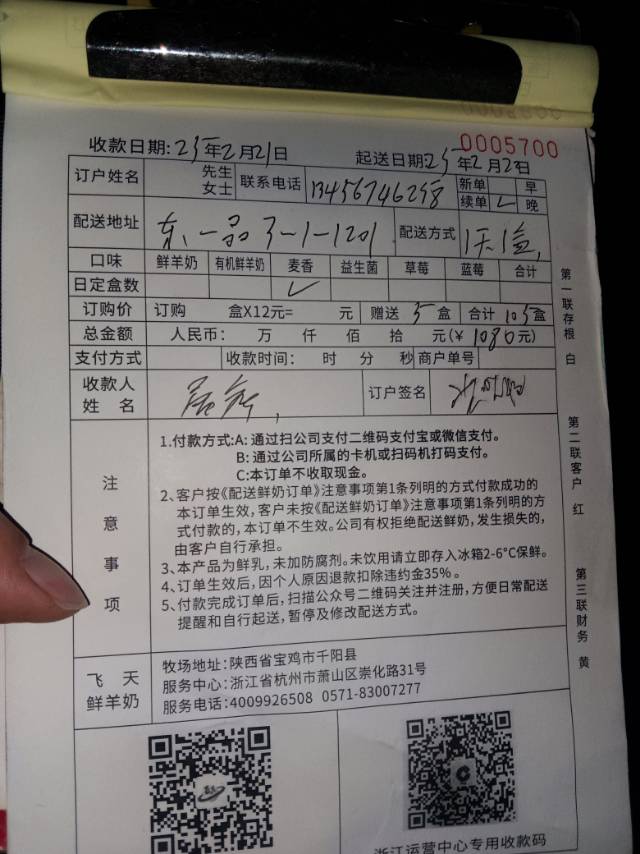 0005700
收款日期:25年2月21日 起送日期25年2月2日
订户姓名 先生 女士 联系电话 13456746258 新单 早 续单 ✓ 晚
配送地址 东一品3-1-1201 配送方式 1天1盒
口味 鲜羊奶 有机鲜羊奶 麦香 益生菌 草莓 蓝莓 合计
日定盒数 ✓
订购价 订购 盒X12元= 元 赠送 5 盒 合计 105 盒
总金额 人民币: 万 仟 佰 拾 元(¥ 1080元)
支付方式 收款时间: 时 分 秒 商户单号
收款人 姓名 订户签名
注意事项
1.付款方式:A:通过扫公司支付二维码支付宝或微信支付。
B:通过公司所属的卡机或扫码机打码支付。
C:本订单不收取现金。
2、客户按《配送鲜奶订单》注意事项第1条列明的方式付款成功的
本订单生效,客户未按《配送鲜奶订单》注意事项第1条列明的方
式付款的,本订单不生效。公司有权拒绝配送鲜奶,发生损失的,
由客户自行承担。
3、本产品为鲜乳,未加防腐剂。未饮用请立即存入冰箱2-6°C保鲜。
4、订单生效后,因个人原因退款扣除违约金35%。
5、付款完成订单后,扫描公众号二维码关注并注册,方便日常配送
提醒和自行起送,暂停及修改配送方式。
飞天
鲜羊奶
牧场地址:陕西省宝鸡市千阳县
服务中心:浙江省杭州市萧山区崇化路31号
服务电话:4009926508 0571-83007277
浙江运营中心专用收款码
第一联存根 白
第二联客户 红
第三联财务 黄